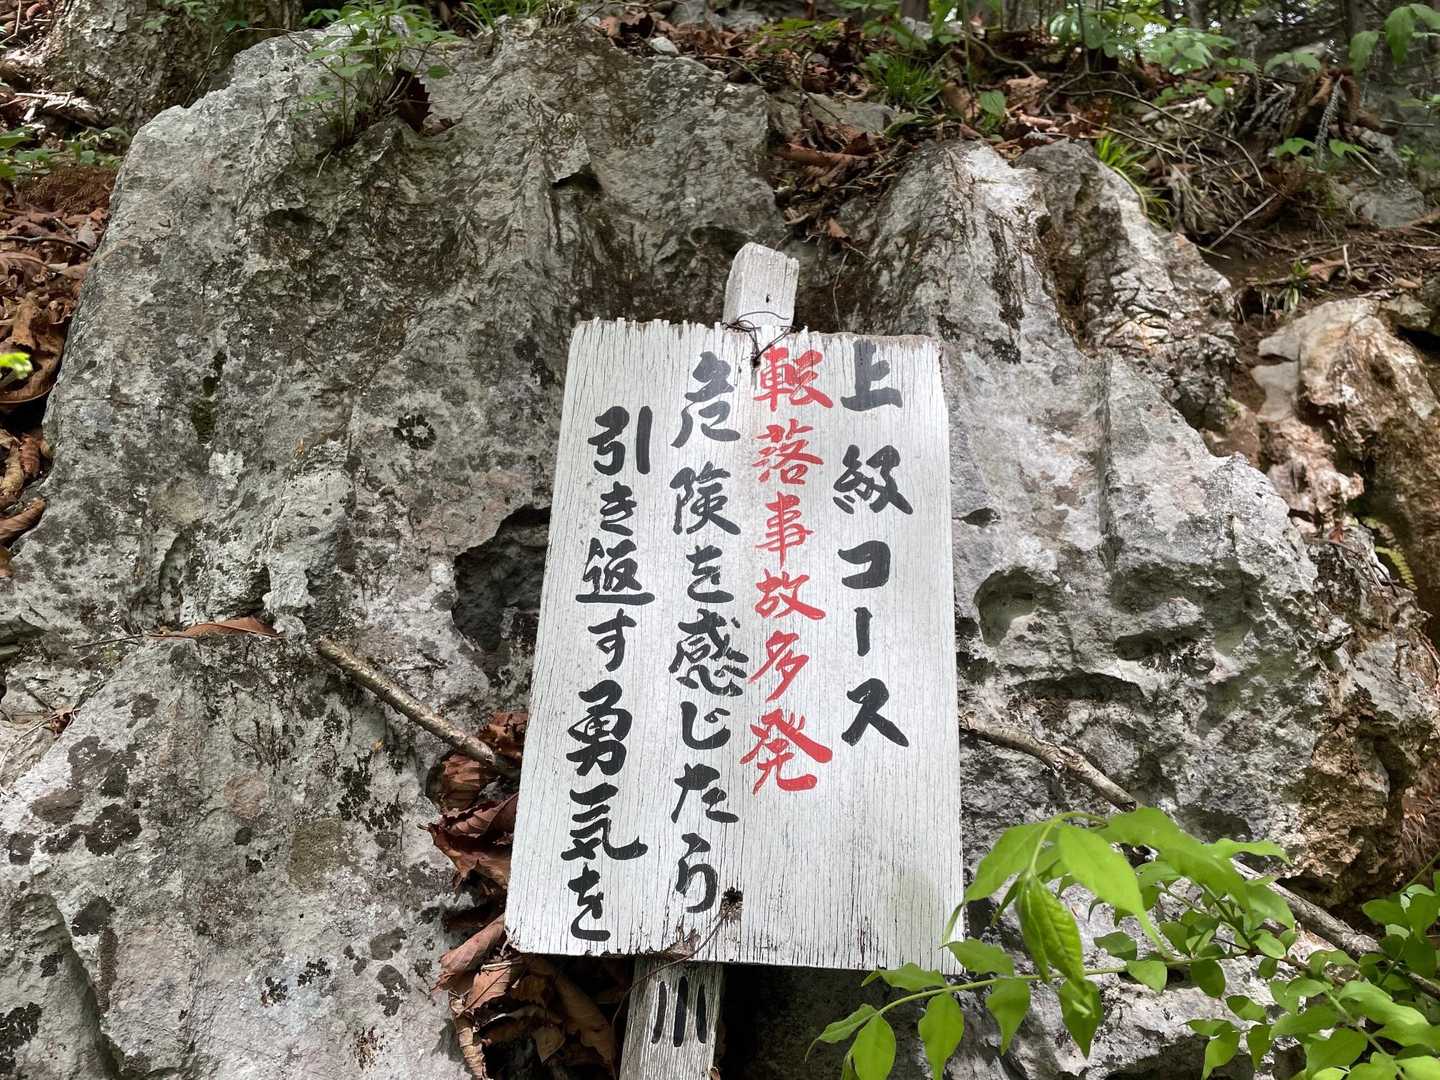 上級コース
転落事故多発
危険を感じたら
引き返す勇気を
川